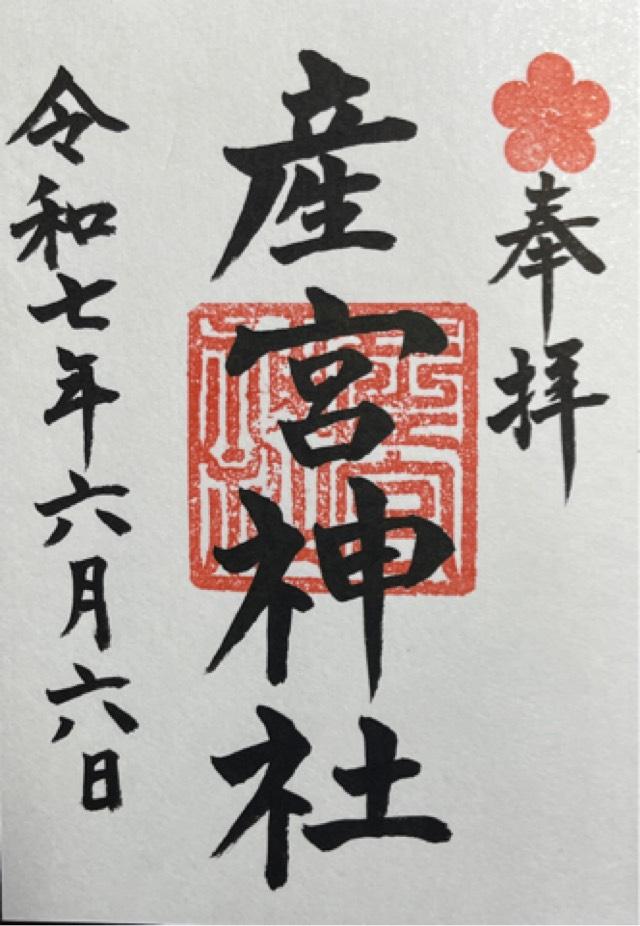 奉拝
産宮神社
令和七年六月六日